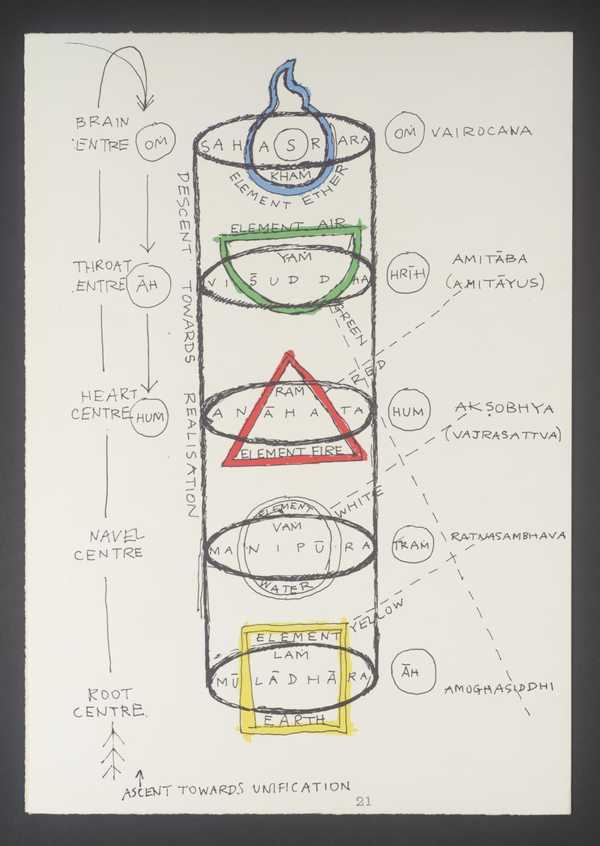 BRAIN
ENTRE
OṀ
SAHASRARA
KHAṀ
ELEMENT ETHER
OṀ VAIROCANA
DESCENT TOWARDS REALISATION
ELEMENT AIR
YAṀ
VIŚUDDHA
THROAT
ENTRE
ĀH
HRĪH
AMITĀBA
(AMITĀYUS)
GREEN
RED
HEART
CENTRE
HUM
RAM
ANĀHATA
ELEMENT FIRE
HUM
AKṢOBHYA
(VAJRASATTVA)
WHITE
NAVEL
CENTRE
ELEMENT
VAṀ
MANIPŪRA
WATER
TRAṀ
RATNASAMBHAVA
YELLOW
ROOT
CENTRE
ELEMENT
LAṀ
MŪLĀDHĀRA
EARTH
ĀH
AMOGHASIDDHI
ASCENT TOWARDS UNIFICATION
21